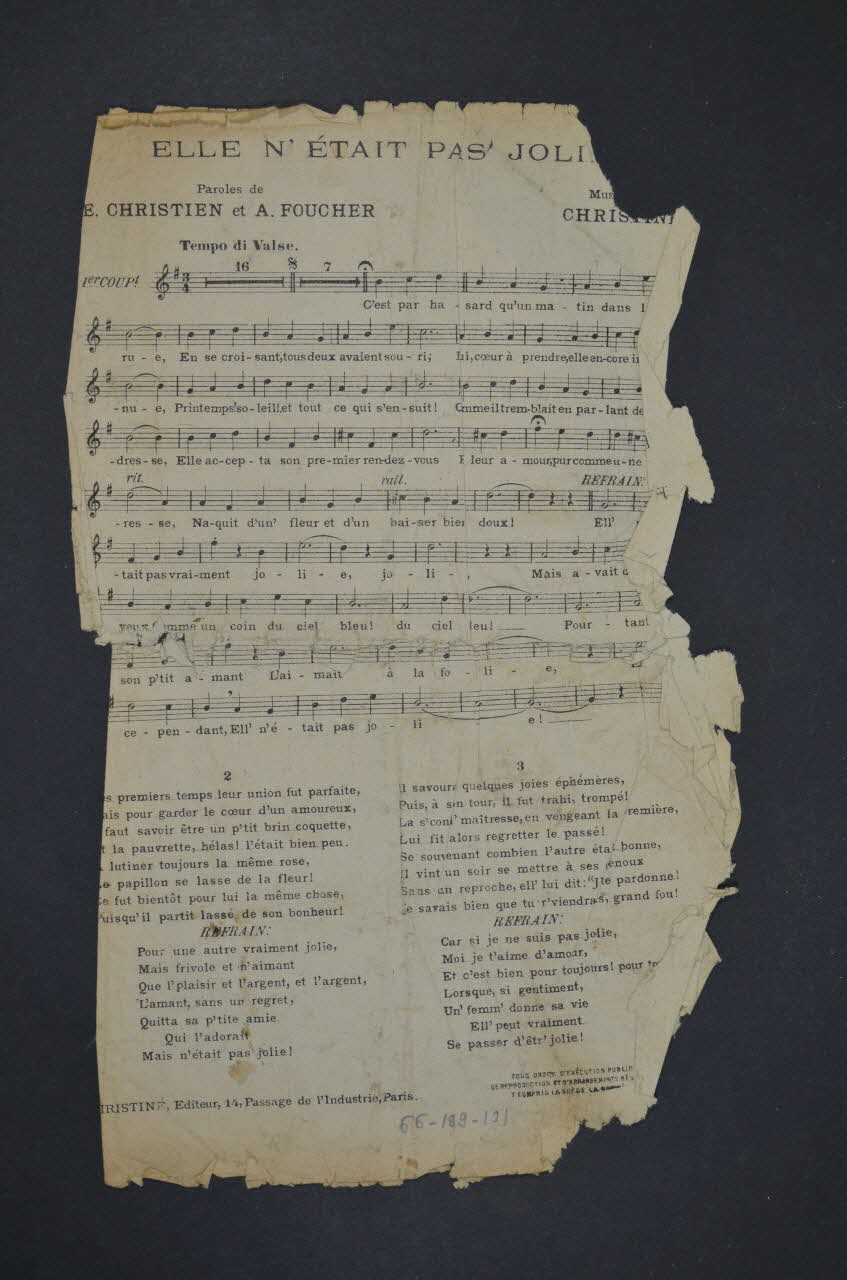 ELLE N' ÉTAIT PAS JOLI
Paroles de
E. CHRISTIEN et A. FOUCHER
Mus
CHRISTINÉ
Tempo di Valse.
1er COUPt
16
7
C'est par ha - sard qu'un ma - tin dans l
ru - e, En se croi-sant, tous deux avaient sou - ri;
cœur à prendre, elle en-core i
- nu - e, Printemps! so-leil! et tout ce qui s'en-suit!
mme il trem-blait en par-lant de
-dres-se, Elle ac-cep - ta son pre-mier ren-dez-vous
leur a-mour, pur comme u-ne
rit.
rall.
REFRAIN:
- res - se, Na-quit d'un' fleur et d'un bai-ser bien doux! Ell'
- tait pas vrai-ment jo - li - e, jo - li - , Mais a - vait
yeux comme un coin du ciel bleu! du ciel leu! Pour - tant
son p'tit a - mant L'ai - mait à la fo - li - e,
ce - pen - dant, Ell' n'é - tait pas jo - li e!
2
es premiers temps leur union fut parfaite,
ais pour garder le cœur d'un amoureux,
faut savoir être un p'tit brin coquette,
t la pauvrette, hélas! l'était bien peu.
lutiner toujours la même rose,
e papillon se lasse de la fleur!
e fut bientôt pour lui la même chose,
uisqu'il partit lassé de son bonheur!
REFRAIN:
Pour une autre vraiment jolie,
Mais frivole et n'aimant
Que l'plaisir et l'argent, et l'argent,
L'amant, sans un regret,
Quitta sa p'tite amie
Qui l'adorait
Mais n'était pas jolie!
3
Il savoura quelques joies éphémères,
Puis, à son tour, il fut trahi, trompé!
La s'cond' maîtresse, en vengeant la remière,
Lui fit alors regretter le passé!
Se souvenant combien l'autre étai bonne,
Il vint un soir se mettre à ses enoux
Sans un reproche, ell' lui dit: "J'te pardonne!
Je savais bien que tu r'viendras, grand fou!
REFRAIN:
Car si je ne suis pas jolie,
Moi je t'aime d'amour,
Et c'est bien pour toujours! pour
Lorsque, si gentiment,
Un' femm' donne sa vie
Ell' peut vraiment
Se passer d'êtr' jolie!
TOUS DROITS D'EXÉCUTION PUBLIQ
DE REPRODUCTION ET D'ARRANGEMENTS RÉS
Y COMPRIS LA SUÈDE LA
HRISTINÉ, Editeur, 14, Passage de l'Industrie, Paris.
66-199-121